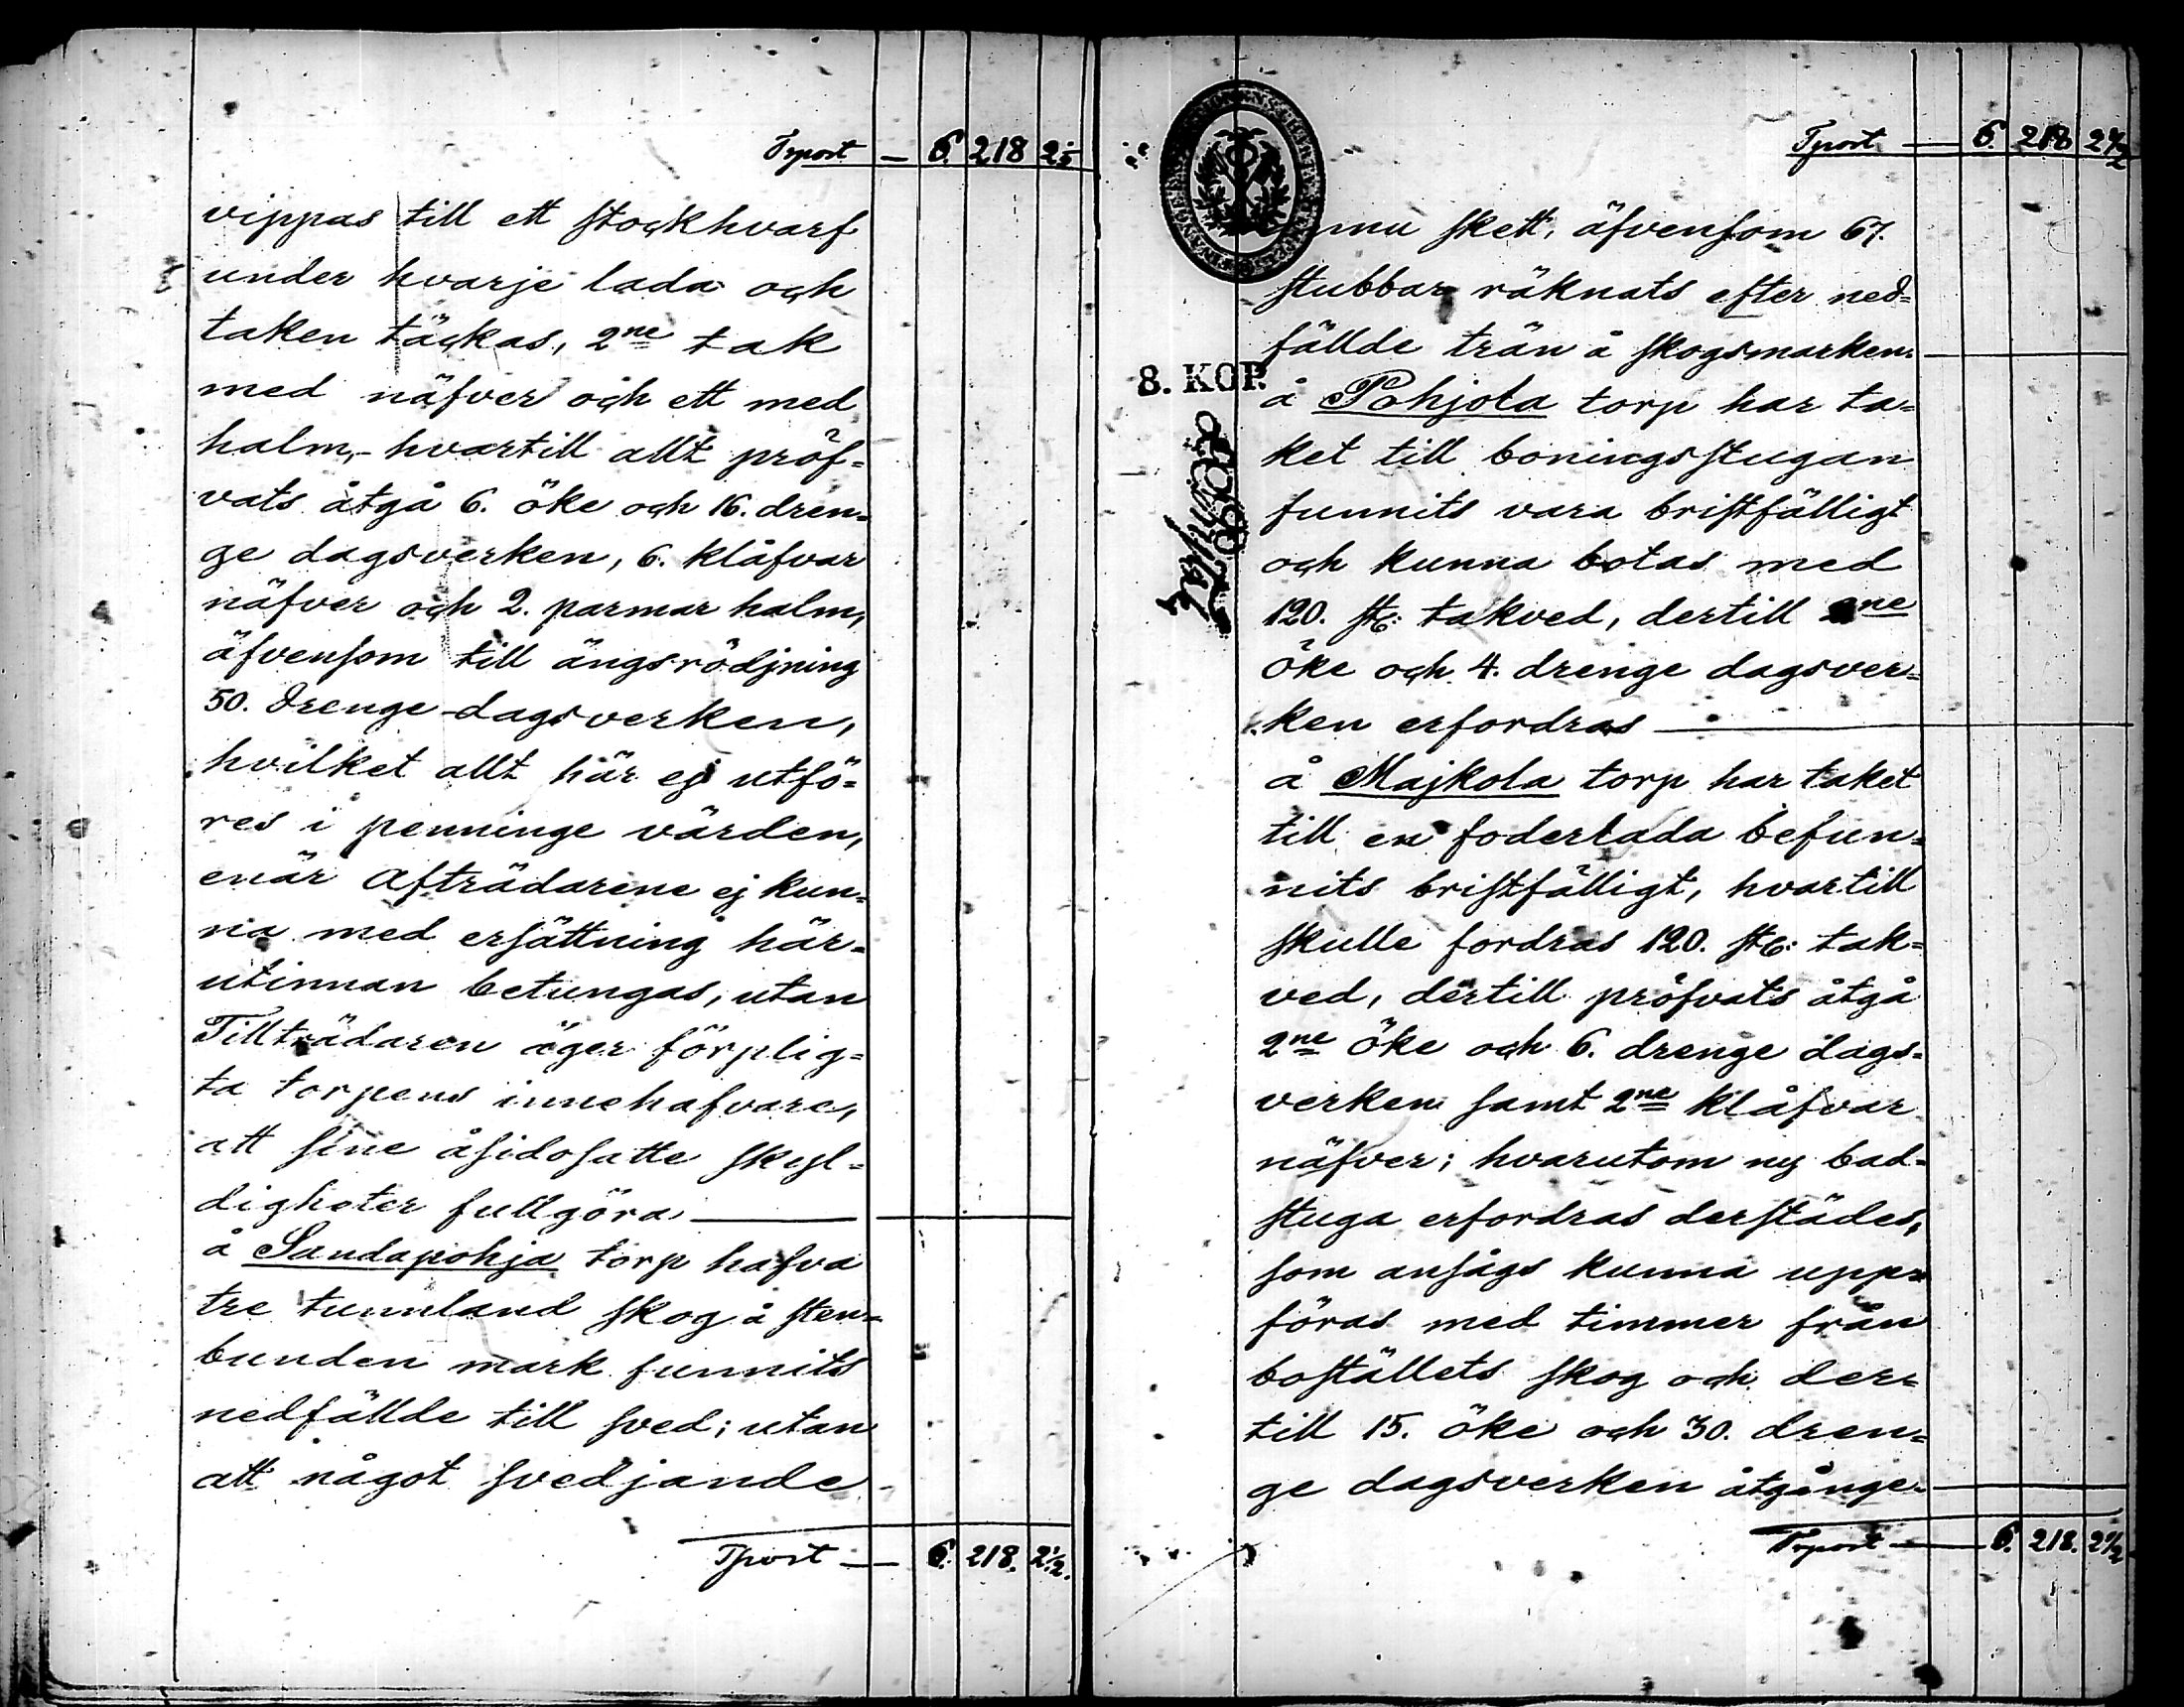 Tsport — 6. 218 2½
vippas till ett stockhvarf
under hvarje lada och
taken täckas, 2ne tak
med näfver och ett med
halm,- hvartill allt pröf=
vats åtgå 6. öke och 16. dren=
ge dagsverken, 6. klåfvar
näfver och 2. parmar halm,
äfvensom till ängsrödjning
50. drenge-dagsverken,
hvilket allt här ej utfö=
res i penninge värden,
enär Afträdarene ej kun=
na med ersättning här=
utinnan betungas, utan
Tillträdaren äger förplig=
ta torpens innehafvare,
att sine åsidosatte skyl=
digheter fullgöra —
å Sandapohja torp hafva
tre tunnland skog å sten=
bunden mark funnits
nedfällde till sved; utan
att något svedjande
Tsport — 6. 218. 2½.
Tsport — 6. 218 2½
ännu skett, äfvensom 67.
stubbar räknats efter ned=
fällde trän å skogsmarken —
8. KOP.
å Pohjola torp har ta=
ket till boningsstugan
funnits vara bristfälligt
och kunna botas med
120. st: takved, dertill 2ne
öke och 4. drenge dagsver=
ken erfordras —
å Majkola torp har taket
till en foderlada befun=
nits bristfälligt, hvartill
skulle fordras 120. st: tak=
ved, dertill pröfvats åtgå
2ne öke och 6. drenge dags=
verken samt 2ne klåfvar
näfver; hvarutom ny bad=
stuga erfordras derstädes,
som ansågs kunna upp=
föras med timmer från
boställets skog och der=
till 15. öke och 30. dren=
ge dagsverken åtgånge —
Tsport — 6. 218. 2½